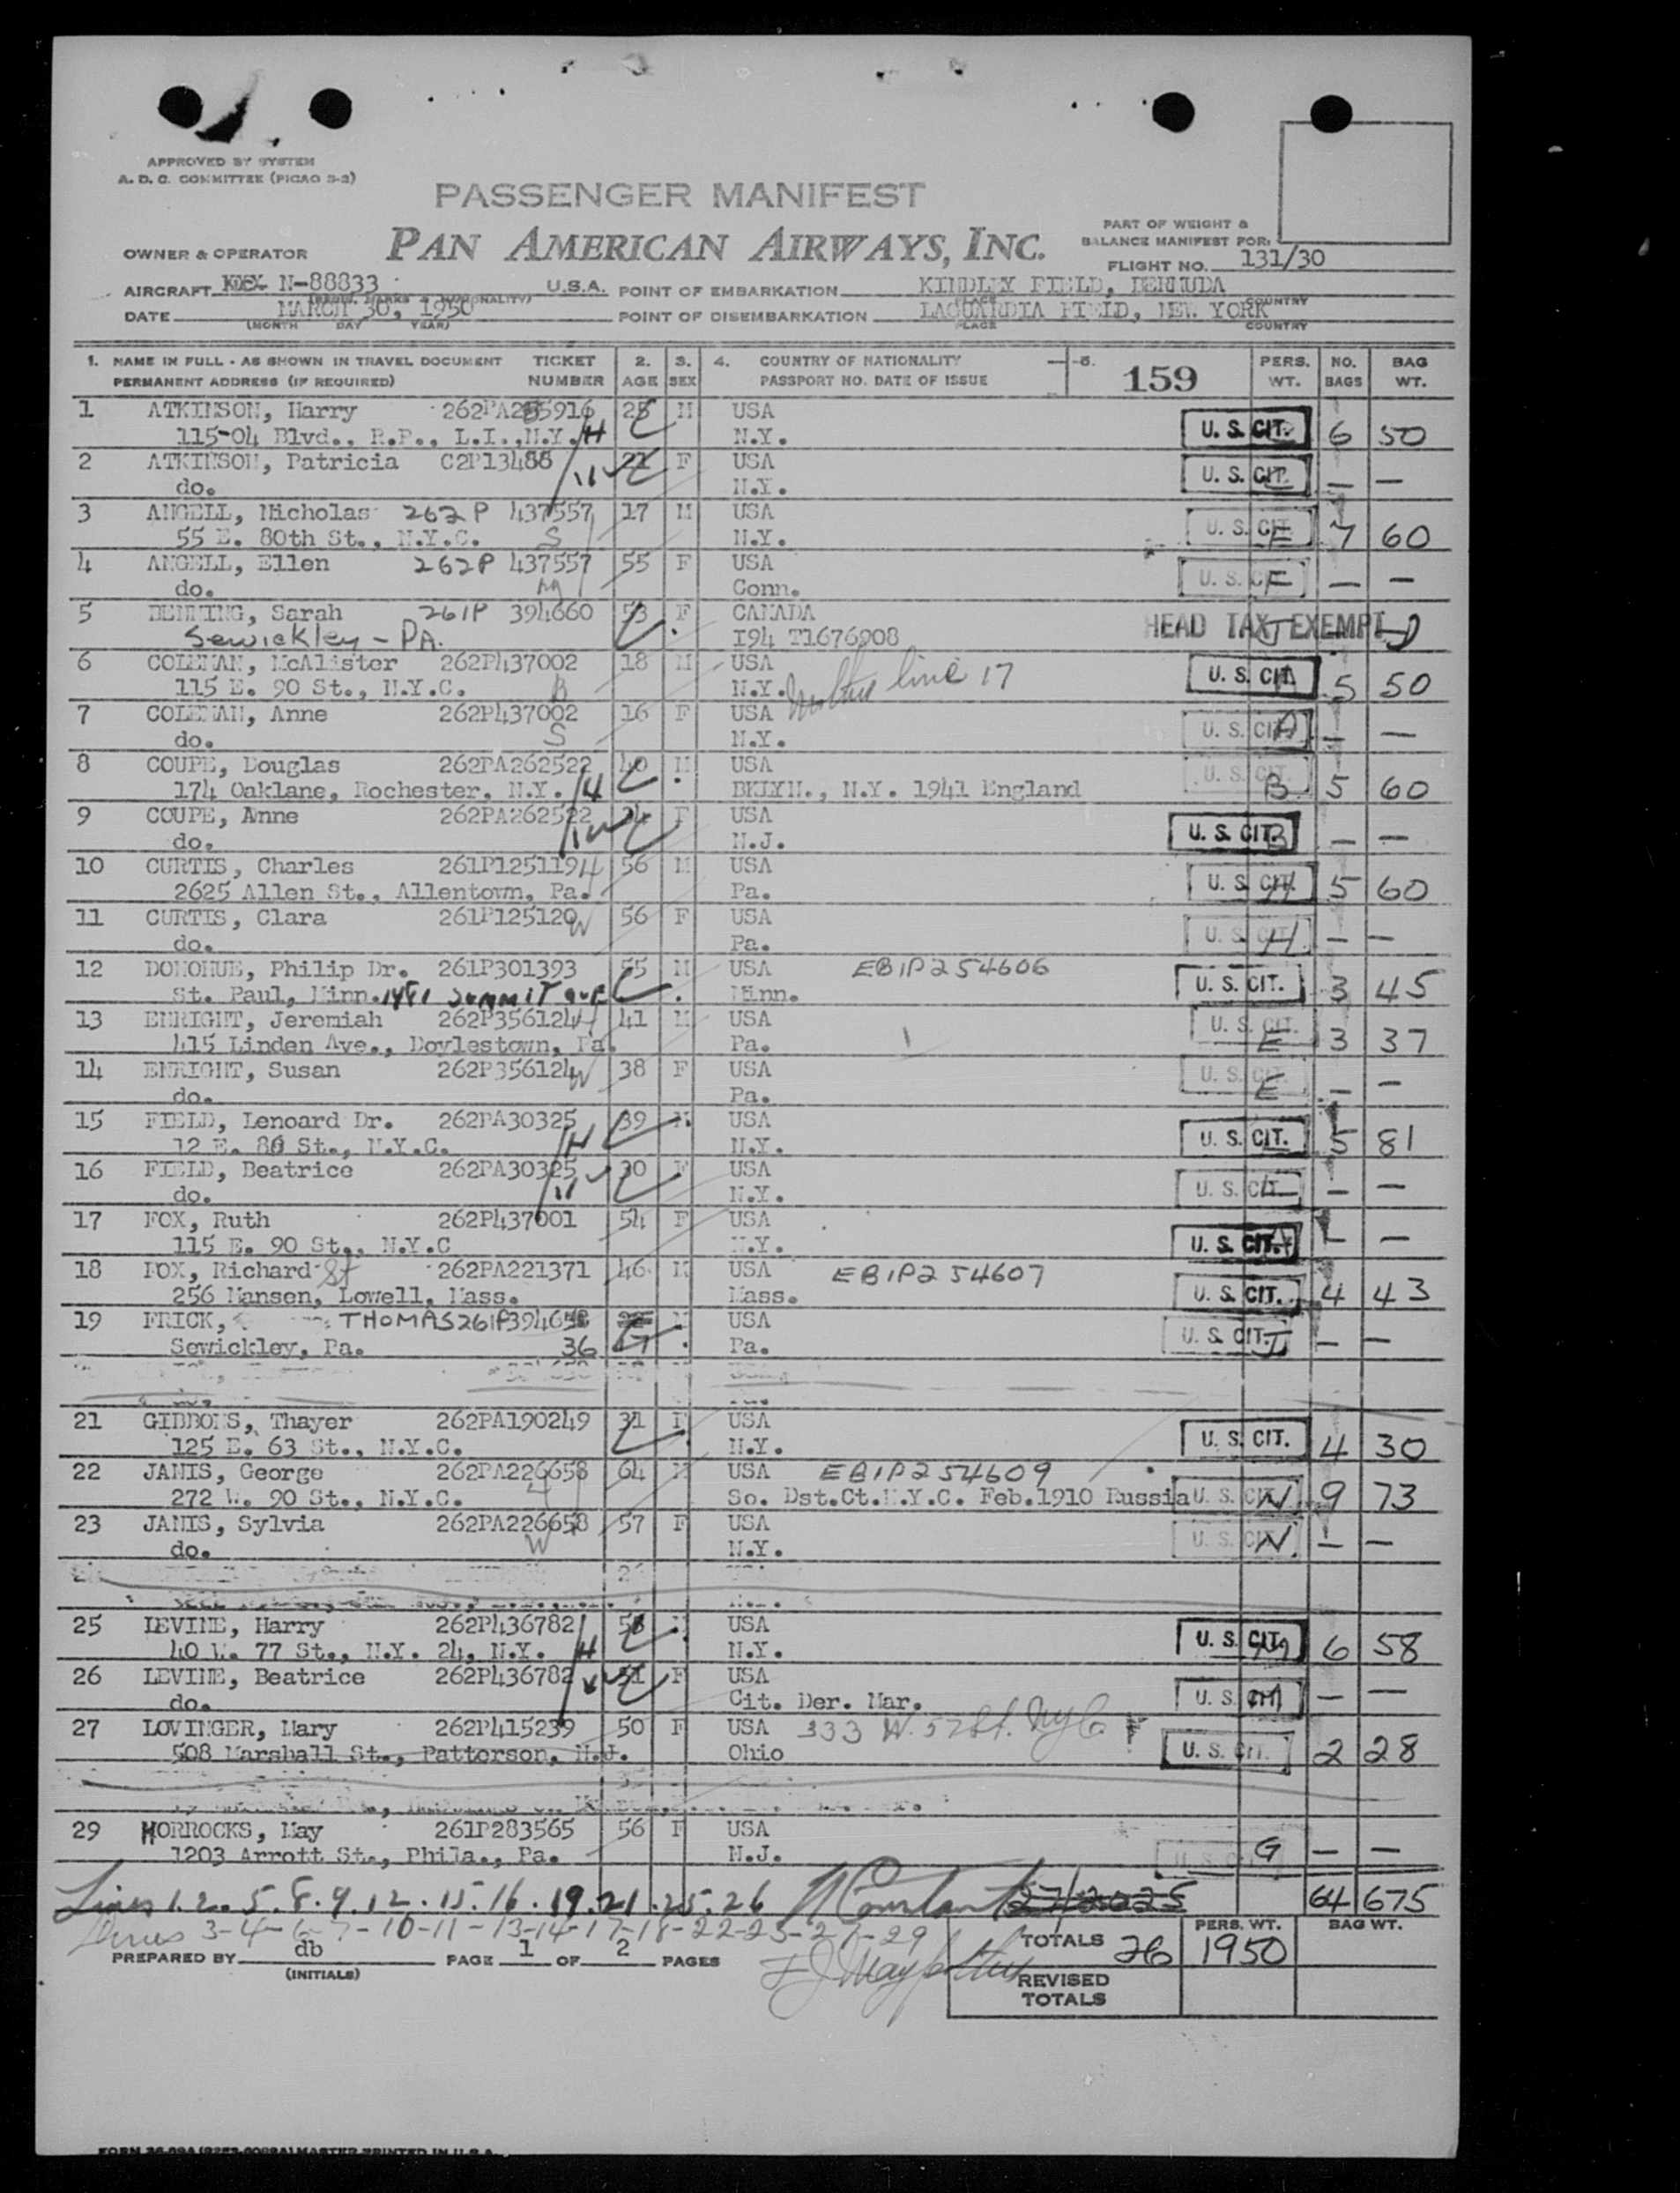 APPROVED BY SYSTEM
A. D. C. COMMITTEE (PICAO S-2)
PASSENGER MANIFEST
OWNER & OPERATOR PAN AMERICAN AIRWAYS, INC.
PART OF WEIGHT &
BALANCE MANIFEST FOR:
FLIGHT NO. 131/30
AIRCRAFT N-88833 U.S.A. POINT OF EMBARKATION KINDLEY FIELD, BERMUDA
DATE MARCH 30, 1950 POINT OF DISEMBARKATION LAGUARDIA FIELD, NEW YORK
(MONTH DAY YEAR) PLACE COUNTRY
1. NAME IN FULL - AS SHOWN IN TRAVEL DOCUMENT TICKET 2. 3. 4. COUNTRY OF NATIONALITY 5. PERS. NO. BAG
PERMANENT ADDRESS (IF REQUIRED) NUMBER AGE SEX PASSPORT NO. DATE OF ISSUE 159 WT. BAGS WT.
1 ATKINSON, Harry 262PA255916 M USA
115-04 Blvd., R.P., L.I., N.Y. H N.Y. U. S. CIT. 6 50
2 ATKINSON, Patricia C2P13488 21 F USA
do. N.Y. U. S. CIT. — —
3 ANGELL, Nicholas 262P 437557 17 M USA
55 E. 80th St., N.Y.C. S N.Y. U. S. CIT. E 7 60
4 ANGELL, Ellen 262P 437557 55 F USA
do. M Conn. U. S. — —
5 DENNING, Sarah 261P 394660 53 F CANADA
Sewickley - PA. I94 T1676908 HEAD TAX EXEMPT
6 COLEMAN, McAlister 262P437002 18 M USA
115 E. 90 St., N.Y.C. B N.Y. Mother line 17 U. S. CIT. A 5 50
7 COLEMAN, Anne 262P437002 16 F USA
do. S N.Y. U. S. CIT. A — —
8 COUPE, Douglas 262PA262522 40 M USA
174 Oaklane, Rochester, N.Y. H BKLYN., N.Y. 1941 England U. S. CIT. B 5 60
9 COUPE, Anne 262PA262522 F USA
do. W N.J. U. S. CIT. B — —
10 CURTIS, Charles 261P125119 H 56 M USA
2625 Allen St., Allentown, Pa. Pa. U. S. CIT. H 5 60
11 CURTIS, Clara 261P125120 W 56 F USA
do. Pa. U. S. CIT. H — —
12 DONOHUE, Philip Dr. 261P301393 55 M USA EBIP254606
St. Paul, Minn. 1481 SUMMIT AVE Minn. U. S. CIT. 3 45
13 ENRIGHT, Jeremiah 262P356124 H 41 M USA
415 Linden Ave., Doylestown, Pa. Pa. U. S. CIT. E 3 37
14 ENRIGHT, Susan 262P356124 W 38 F USA
do. Pa. U. S. CIT. E — —
15 FIELD, Lenoard Dr. 262PA30325 39 M USA
12 E. 86 St., N.Y.C. H N.Y. U. S. CIT. 5 81
16 FIELD, Beatrice 262PA30325 30 F USA
do. W N.Y. U. S. CIT. — —
17 FOX, Ruth 262P437001 54 F USA
115 E. 90 St., N.Y.C N.Y. U. S. CIT. A — —
18 FOX, Richard 262PA221371 46 M USA EBIP254607
256 Hansen, St Lowell, Mass. Mass. U. S. CIT. 4 43
19 FRICK, THOMAS 261P394658 M USA
Sewickley, Pa. 36 Pa. U. S. CIT. J — —
21 GIBBONS, Thayer 262PA190249 31 F USA
125 E. 63 St., N.Y.C. N.Y. U. S. CIT. 4 30
22 JANIS, George 262PA226658 64 M USA EBIP254609
272 W. 90 St., N.Y.C. H So. Dst.Ct.N.Y.C. Feb.1910 Russia U. S. CIT. N 9 73
23 JANIS, Sylvia 262PA226658 57 F USA
do. W N.Y. U. S. CIT. N — —
25 LEVINE, Harry 262P436782 M USA
40 W. 77 St., N.Y. 24, N.Y. H N.Y. U. S. CIT. M 6 58
26 LEVINE, Beatrice 262P436782 W 51 F USA
do. Cit. Der. Mar. U. S. CIT. M — —
27 LOVINGER, Mary 262P415239 50 F USA 333 W. 57 St. NYC
508 Marshall St., Patterson, N.J. Ohio U. S. CIT. 2 28
29 HORROCKS, May 261P283565 56 F USA
1203 Arrott St., Phila., Pa. N.J. U. S. CIT. G — —
Lines 1.2.5.8.9.12.15.16.19.21.25.26 64 675
Lines 3-4-6-7-10-11-13-14-17-18-22-23-27-29 PERS. WT. BAG WT.
PREPARED BY db PAGE 1 OF 2 PAGES TOTALS 26 1950
(INITIALS) REVISED
TOTALS